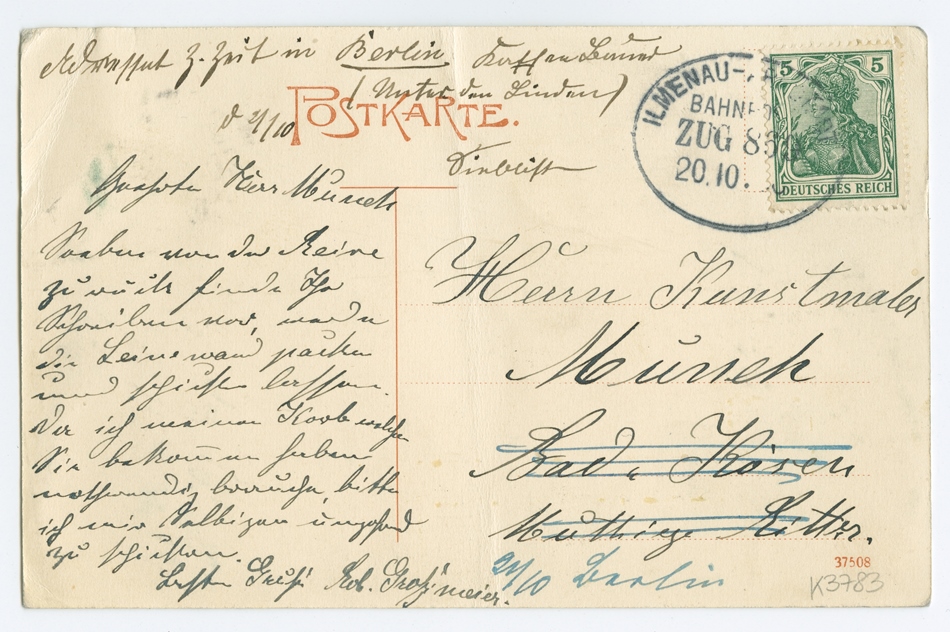 Adressat z. Zeit in Berlin
(Unter den Linden)
d 21/10
POSTKARTE.
ILMENAU-
BAHNPOST
ZUG 8
20.10.
5 5
DEUTSCHES REICH
Geehrter Herr Munch
Soeben von der Reise
zurück finde Ihr
Schreiben vor, werde
die Leinewand packen
und schicken lassen.
Da ich meinen Korb welchen
Sie bekommen haben
nothwendig brauche, bitte
ich mir Selbigen umgehend
zu schicken.
Besten Gruß Rob. Großmeier.
Herrn Kunstmaler
Munch
Bad. Kösen
Muthiger Ritter.
21/10 Berlin
37508
K3783